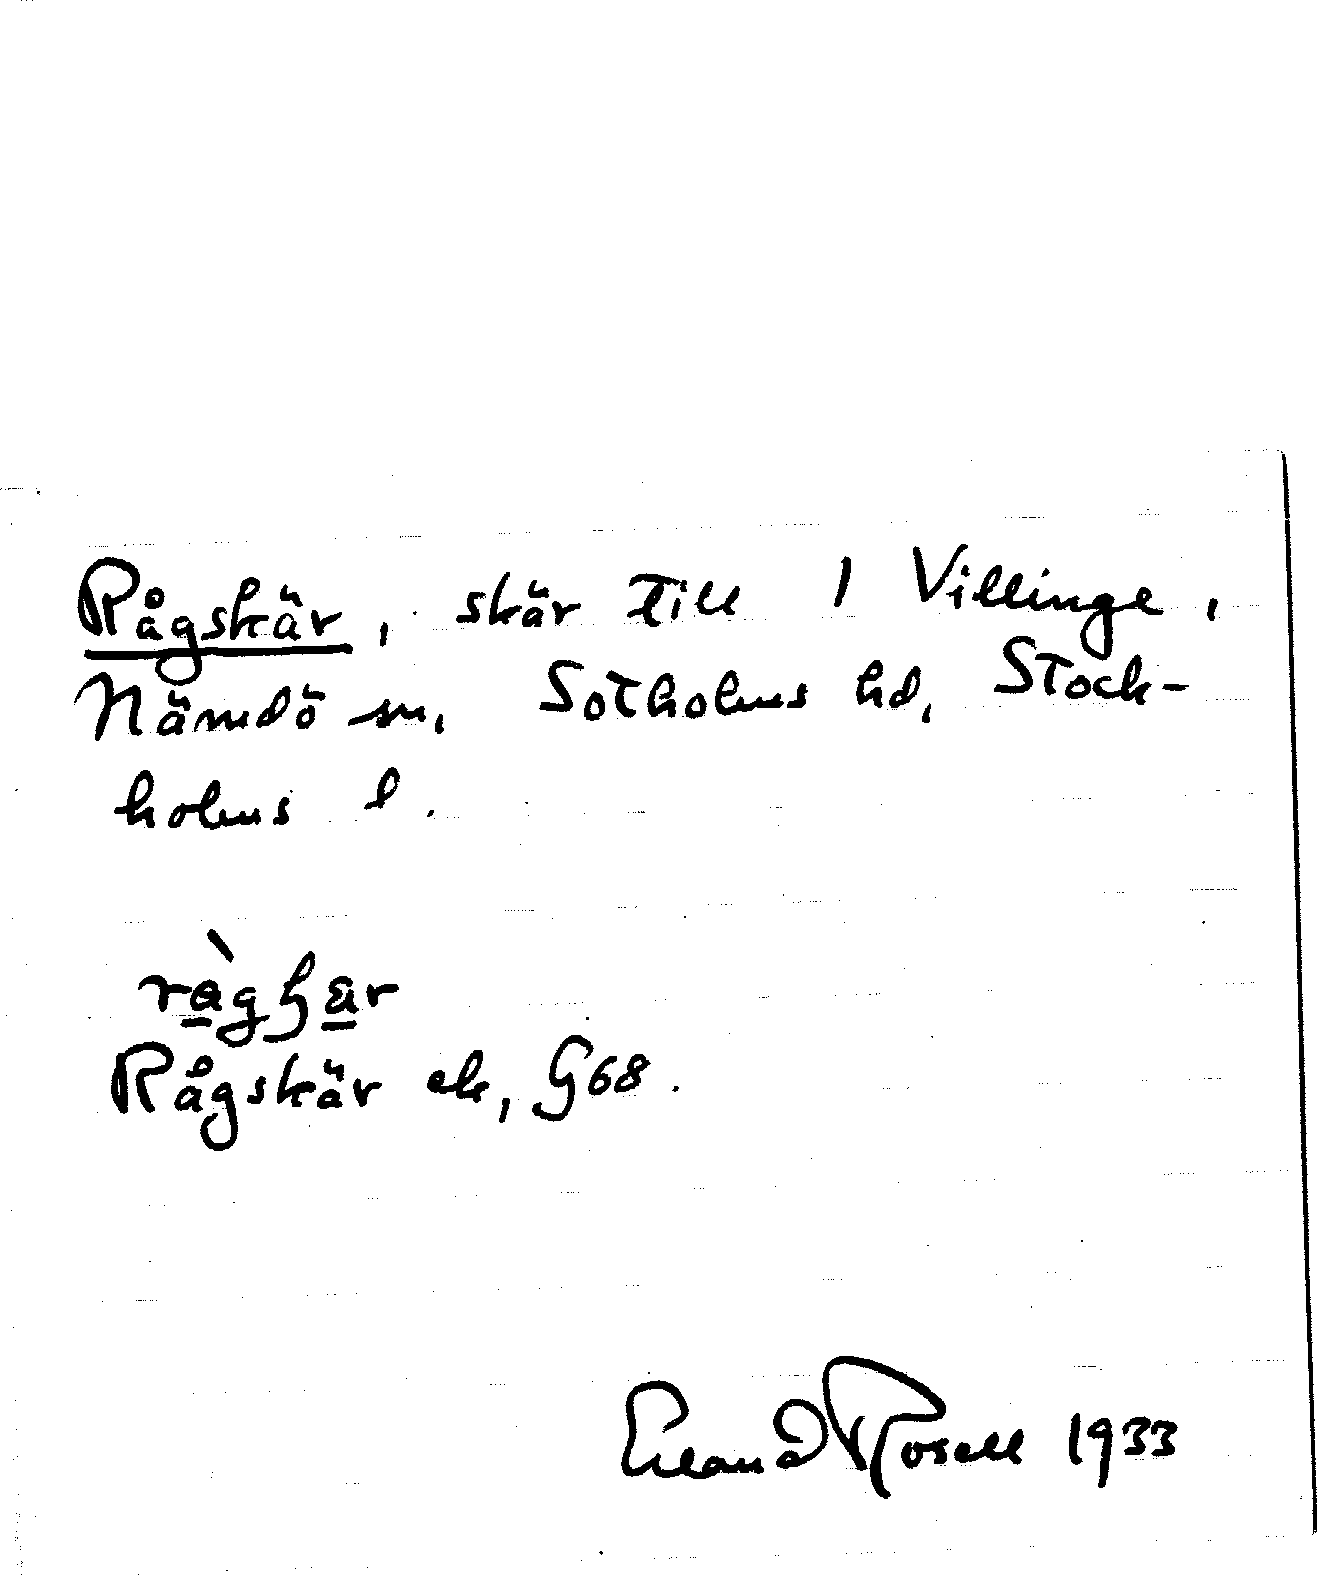 Rågskär, skär till 1 Villinge,
Nämdö sn, Sotholms hd, Stock-
holms l.
Rågskär ek, G68.
Erland Rosell 1933